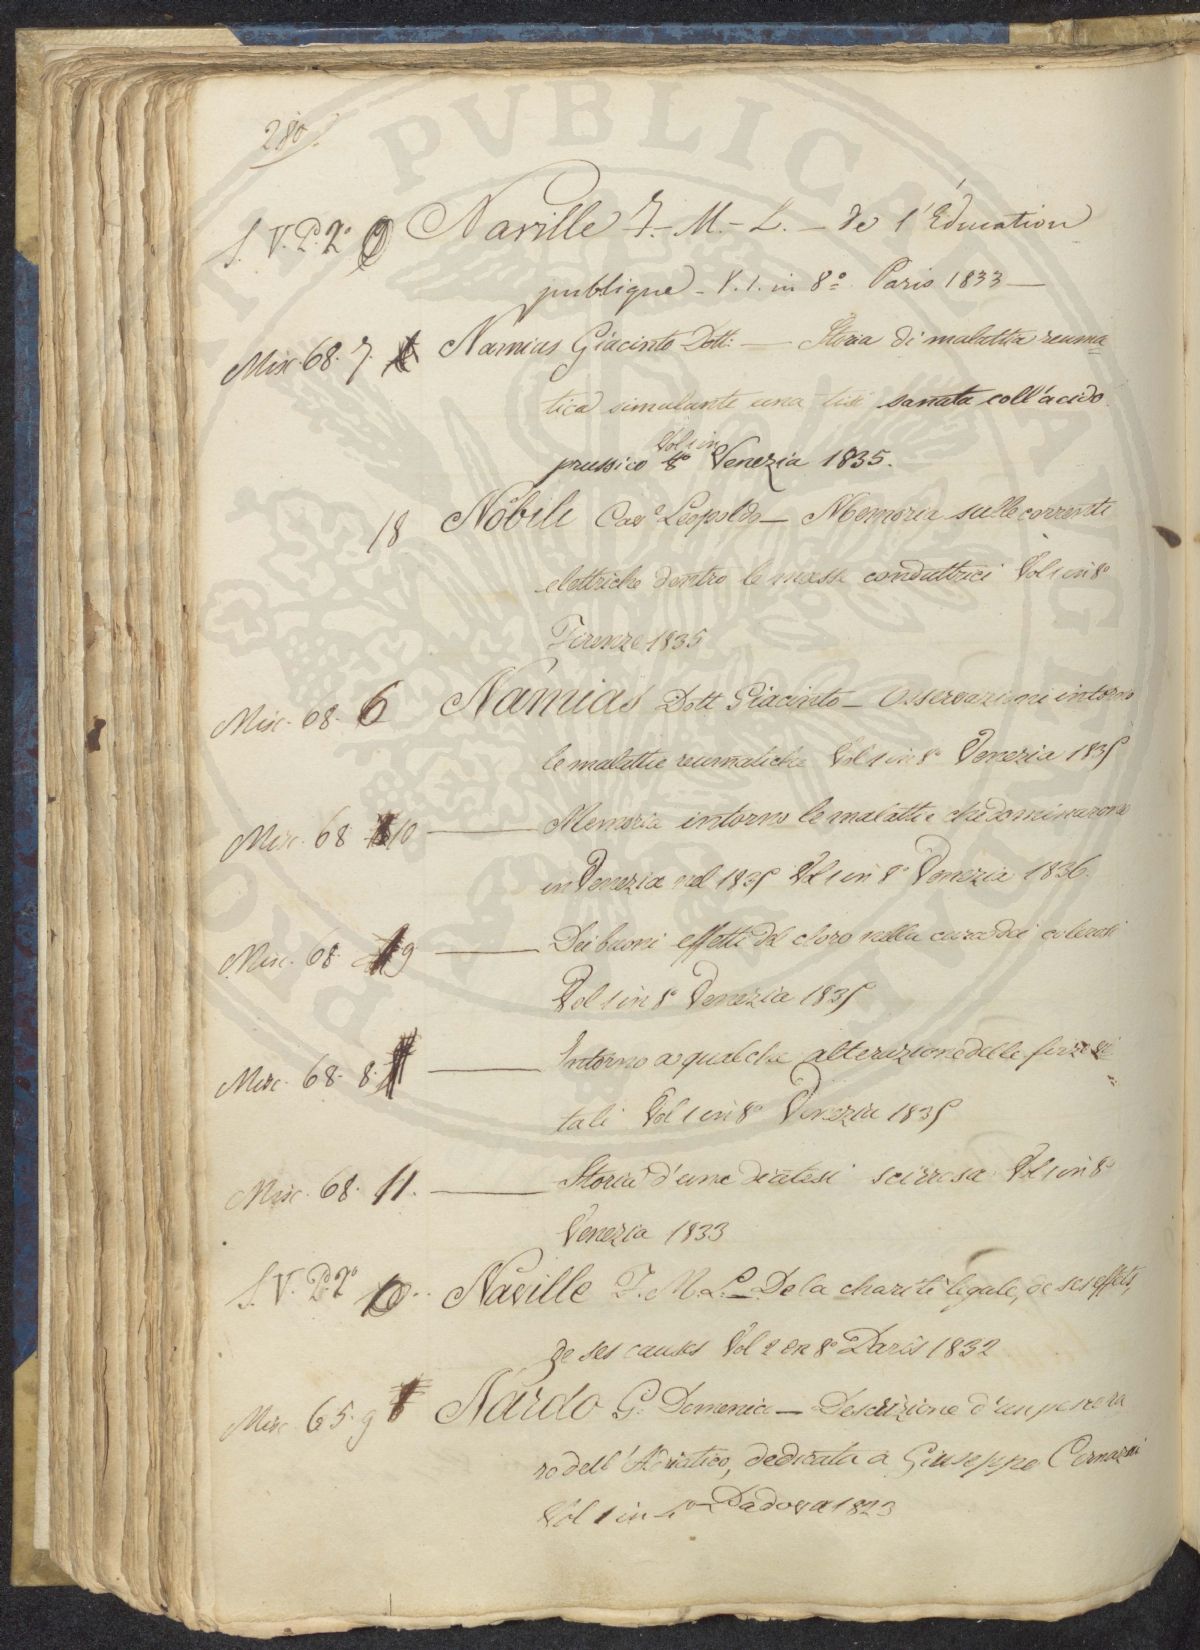 280.
S. V. P. 2º Naville F. M. L. — de l'Éducation
publique — V. 1. in 8º Paris 1833 —
Misc. 68. 7. Namias Giacinto Dott: — Storia di malattia reuma=
tica simulante una tisi sanata coll'acido
prussico Vol 1 in 8º Venezia 1835.
18 Nobili Cavº Leopoldo — Memoria sulle correnti
elettriche dentro le masse conduttrici Vol 1 in 8º
Firenze 1835
Misc. 68. 6 Namias Dott Giacinto — Osservazioni intorno
le malattie reumatiche Vol 1 in 8º Venezia 1835
Misc. 68 10 — Memoria intorno le malattie che dominarono
in Venezia nel 1835 Vol 1 in 8º Venezia 1836.
Misc. 68. 9 — Dei buoni effetti del cloro nella cura dei colerosi
Vol 1 in 8º Venezia 1835
Misc. 68. 8. — Intorno a qualche alterazione delle forze vi=
tali Vol 1 in 8º Venezia 1835
Misc. 68. 11. — Storia d'una diatesi scirrosa Vol 1 in 8º
Venezia 1833
S. V. P. 2º 10. Naville F. M. L. — De la charité légale, de ses effets,
de ses causes Vol 2 en 8º Paris 1832
Misc. 65. 9 Nardo G. Domenico — Descrizione d'un pesce ra
ro dell'Adriatico, dedicata a Giuseppe
Vol 1 in 4º Padova 1823
PUBLICAE